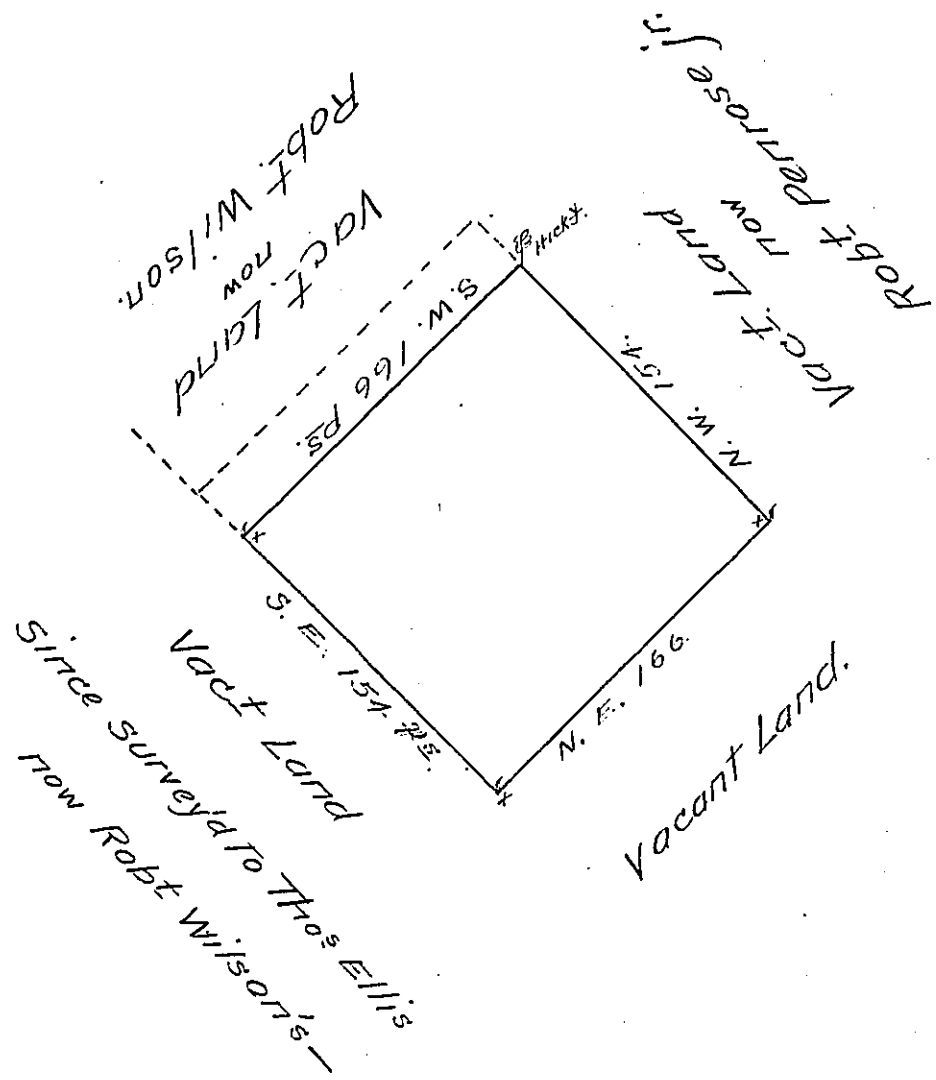 Robt. Wilson.
Vact. Land
now
Robt Penrose jr.
now
Vact. Land
Hick'y.
S. W. 166 ps.
N. W. 154.
S. E. 154 ps.
N. E. 166.
Vact Land
Since Survey'd To Thos Ellis
now Robt Wilson's—
Vacant Land.